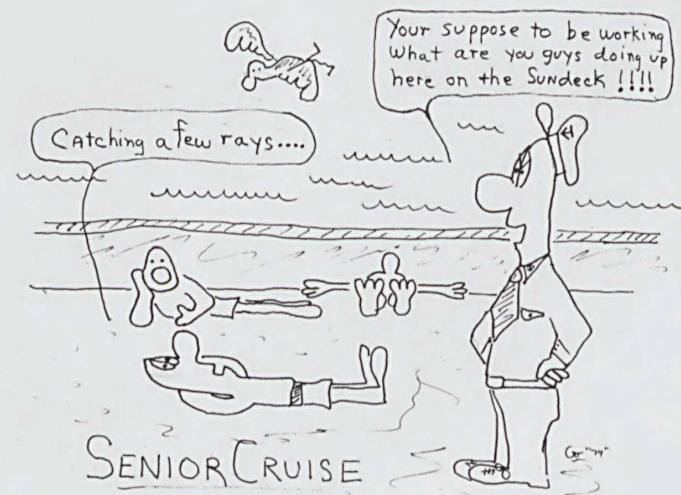 Your suppose to be working
what are you guys doing up
here on the Sundeck !!!!
Catching a few rays....
SENIOR CRUISE
"74"